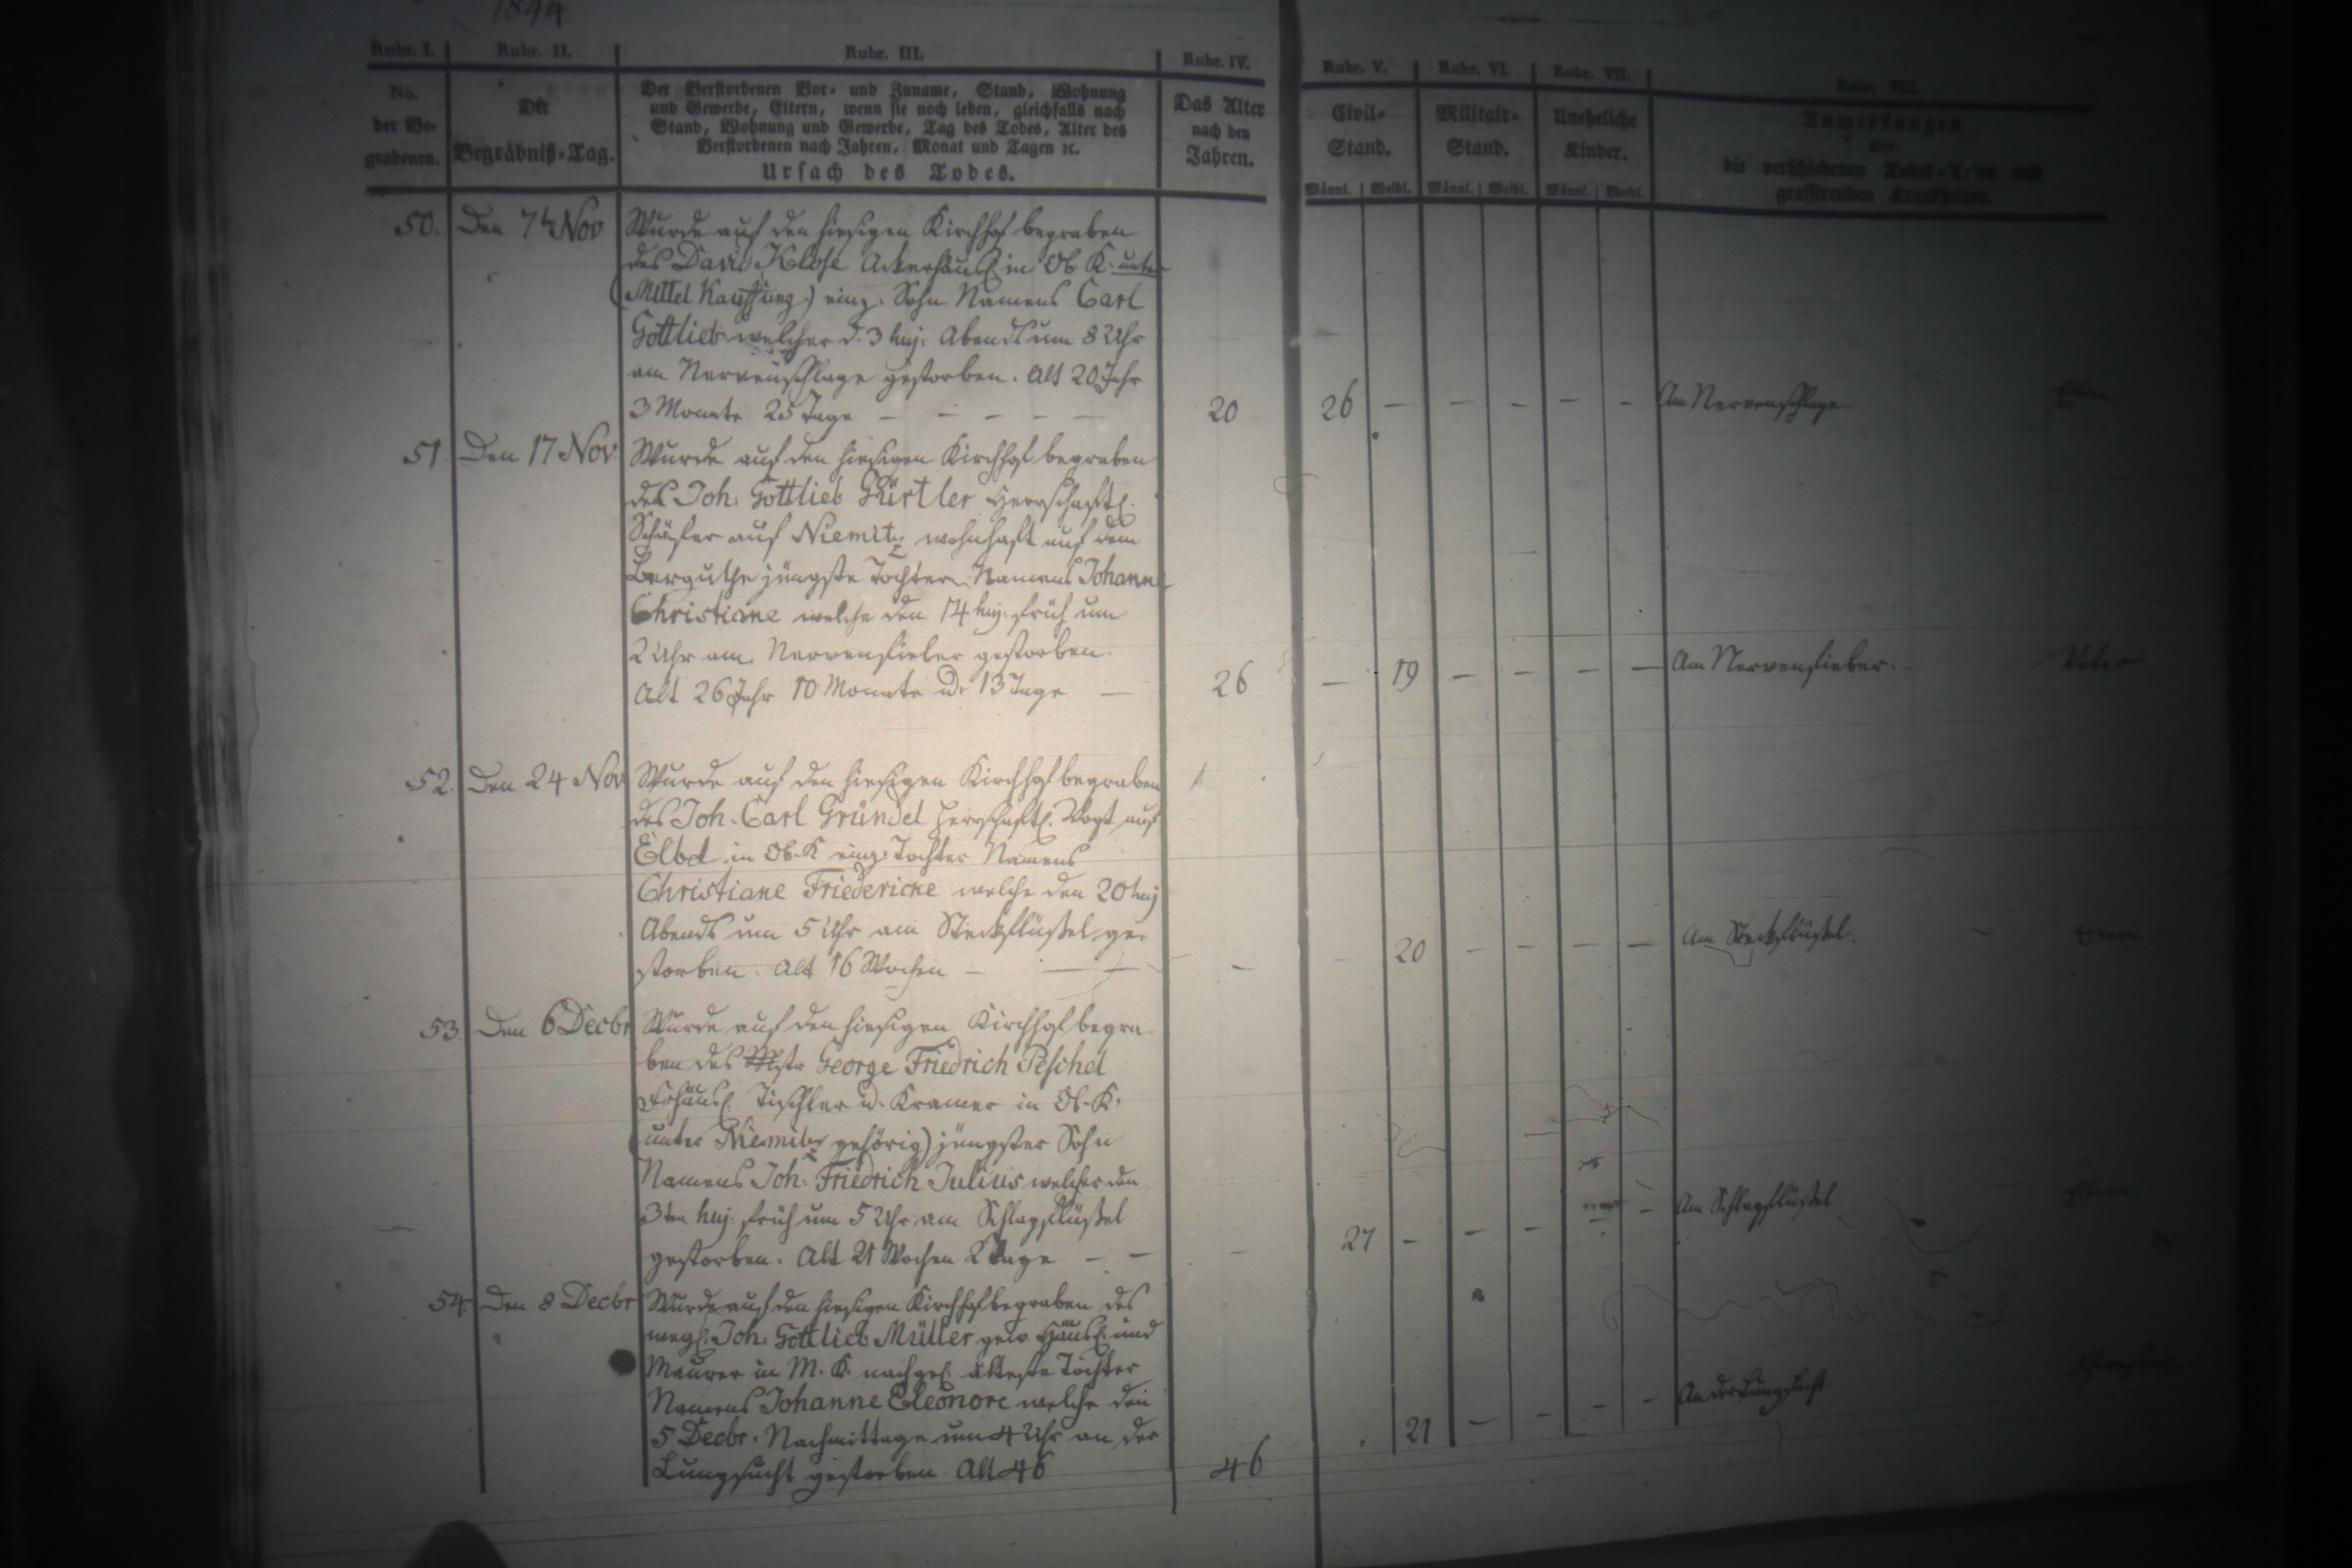 1844
Rubr. I. Rubr. II. Rubr. III. Rubr. IV. Rubr. V. Rubr. VI. Rubr. VII. Rubr. VIII.
No. der Begrabenen.
Der Begräbniß-Tag.
Der Verstorbenen Vor- und Zuname, Stand, Wohnung
und Gewerbe, Eltern, wenn sie noch leben, gleichfalls nach
Stand, Wohnung und Gewerbe, Tag des Todes, Alter des
Verstorbenen nach Jahren, Monat und Tagen ꝛc.
Ursach des Todes.
Das Alter
nach den
Jahren.
Civil-
Stand.
Männl. Weibl.
Militair-
Stand.
Männl. Weibl.
Uneheliche
Kinder.
Männl. Weibl.
Anmerkungen
über
die verschiedenen Todes-Arten und
grassirenden Krankheiten.
50. Den 7ten Nov Wurde auf den hiesigen Kirchhof begraben
des David Klose Ackerhäusl. in Ob. K. unter
(Mittel Kauffung) einz. Sohn Namens Carl
Gottlieb welcher d. 3 huj. Abends um 8 Uhr
am Nervenschlage gestorben. Alt 20 Jahr
3 Monate 25 Tage — — — — — 20 26 — — — — — Am Nervenschlage. Eltern
51 Den 17 Nov. Wurde auf den hiesigen Kirchhof begraben
des Joh. Gottlieb Gürtler Herrschaftl.
Schäfer auf Niemitz wohnhaft auf dem
Berguthe jüngste Tochter Namens Johanne
Christiane welche den 14 huj. früh um
2 Uhr am Nervenfieber gestorben.
Alt 26 Jahr 10 Monate u. 13 Tage — 26 — 19 — — — — Am Nervenfieber. Vater
52. Den 24 Nov Wurde auf den hiesigen Kirchhof begraben
des Joh. Carl Gründel Herrschaftl. Vogt auf
Elbel in Ob. K einz. Tochter Namens
Christiane Friedericke welche den 20 huj
Abends um 5 Uhr am Steckflüßel ge-
storben. Alt 16 Wochen — — — — 20 — — — — Am Steckflüßel. Eltern
53. Den 6 Decbr Wurde auf den hiesigen Kirchhof begra-
ben des Mstr George Friedrich Peschel
Frhäusl. Tischler u. Kramer in Ob. K.
(unter Niemitz gehörig) jüngster Sohn
Namens Joh. Friedrich Julius welcher den
3ten huj. früh um 5 Uhr am Schlagflüßel
gestorben. Alt 21 Wochen 2 Tage — — — 27 — — — — — Am Schlagflüßel. Eltern
54. Den 8 Decbr Wurde auf den hiesigen Kirchhof begraben des
weyl. Joh. Gottlieb Müller gew. Häusl. und
Maurer in M. K. nachgel. älteste Tochter
Namens Johanne Eleonore welche den
5 Decbr. Nachmittage um 4 Uhr an der
Lungsucht gestorben. Alt 46 46 21 — — — — An der Lungsucht. Schwester